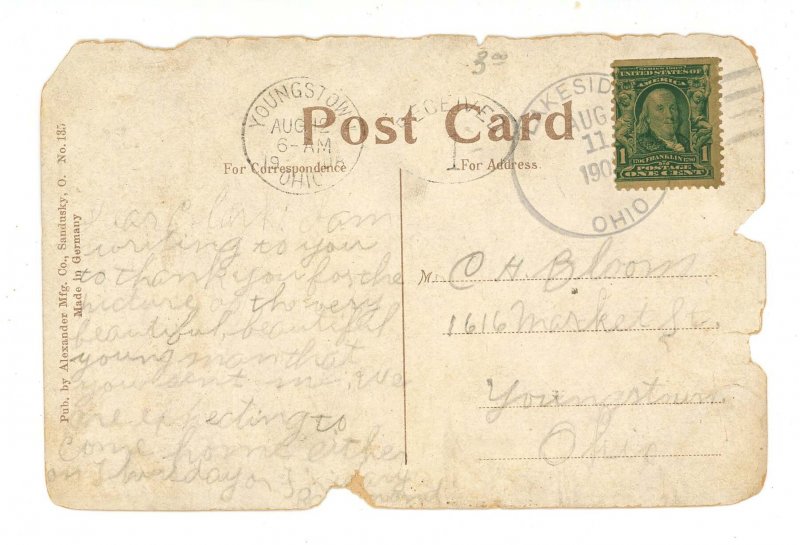 3 00
YOUNGSTOWN
AUG 12
6-AM
19 08
OHIO
RECEIVED
1
LAKESIDE
AUG
11
190
OHIO
UNITED STATES OF
AMERICA
1 1
FRANKLIN
POSTAGE
ONE CENT
Post Card
For Correspondence
For Address
Pub. by Alexander Mfg. Co., Sandusky, O. No. 135
Made in Germany
Dear I am
writing to you
to thank you for the
picture of the very
beautiful, beautiful
young man that
you sent me. We
are expecting to
come home either
on Thursday or Friday
C H Bloom
1616 Market St.
Youngstown
Ohio